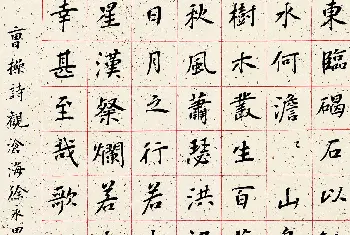 東臨碣石以
水何澹〻山
樹木叢生百
秋風蕭瑟洪
日月之行若
星漢粲爛若
幸甚至哉歌
曹操詩觀滄海徐永